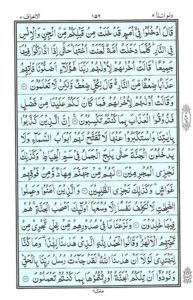 الاعراف ٧
١٥٦
ولو اننا ٨
قَالَ ادْخُلُوا فِي أُمَمٍ قَدْ خَلَتْ مِنْ قَبْلِكُمْ مِنَ الْجِنِّ وَالْإِنْسِ
فِي النَّارِ كُلَّمَا دَخَلَتْ أُمَّةٌ لَعَنَتْ أُخْتَهَا حَتَّى إِذَا ادَّارَكُوا فِيهَا
جَمِيعًا قَالَتْ أُخْرَاهُمْ لِأُولَاهُمْ رَبَّنَا هَؤُلَاءِ أَضَلُّونَا فَآتِهِمْ
عَذَابًا ضِعْفًا مِنَ النَّارِ قَالَ لِكُلٍّ ضِعْفٌ وَلَكِنْ لَا تَعْلَمُونَ
وَقَالَتْ أُولَاهُمْ لِأُخْرَاهُمْ فَمَا كَانَ لَكُمْ عَلَيْنَا مِنْ فَضْلٍ
فَذُوقُوا الْعَذَابَ بِمَا كُنْتُمْ تَكْسِبُونَ إِنَّ الَّذِينَ كَذَّبُوا
بِآيَاتِنَا وَاسْتَكْبَرُوا عَنْهَا لَا تُفَتَّحُ لَهُمْ أَبْوَابُ السَّمَاءِ وَلَا
يَدْخُلُونَ الْجَنَّةَ حَتَّى يَلِجَ الْجَمَلُ فِي سَمِّ الْخِيَاطِ وَكَذَلِكَ
نَجْزِي الْمُجْرِمِينَ لَهُمْ مِنْ جَهَنَّمَ مِهَادٌ وَمِنْ فَوْقِهِمْ
غَوَاشٍ وَكَذَلِكَ نَجْزِي الظَّالِمِينَ وَالَّذِينَ آمَنُوا وَعَمِلُوا
الصَّالِحَاتِ لَا نُكَلِّفُ نَفْسًا إِلَّا وُسْعَهَا أُولَئِكَ أَصْحَابُ الْجَنَّةِ هُمْ
فِيهَا خَالِدُونَ وَنَزَعْنَا مَا فِي صُدُورِهِمْ مِنْ غِلٍّ تَجْرِي مِنْ
تَحْتِهِمُ الْأَنْهَارُ وَقَالُوا الْحَمْدُ لِلَّهِ الَّذِي هَدَانَا لِهَذَا وَمَا كُنَّا
لِنَهْتَدِيَ لَوْلَا أَنْ هَدَانَا اللَّهُ لَقَدْ جَاءَتْ رُسُلُ رَبِّنَا بِالْحَقِّ
وَنُودُوا أَنْ تِلْكُمُ الْجَنَّةُ أُورِثْتُمُوهَا بِمَا كُنْتُمْ تَعْمَلُونَ